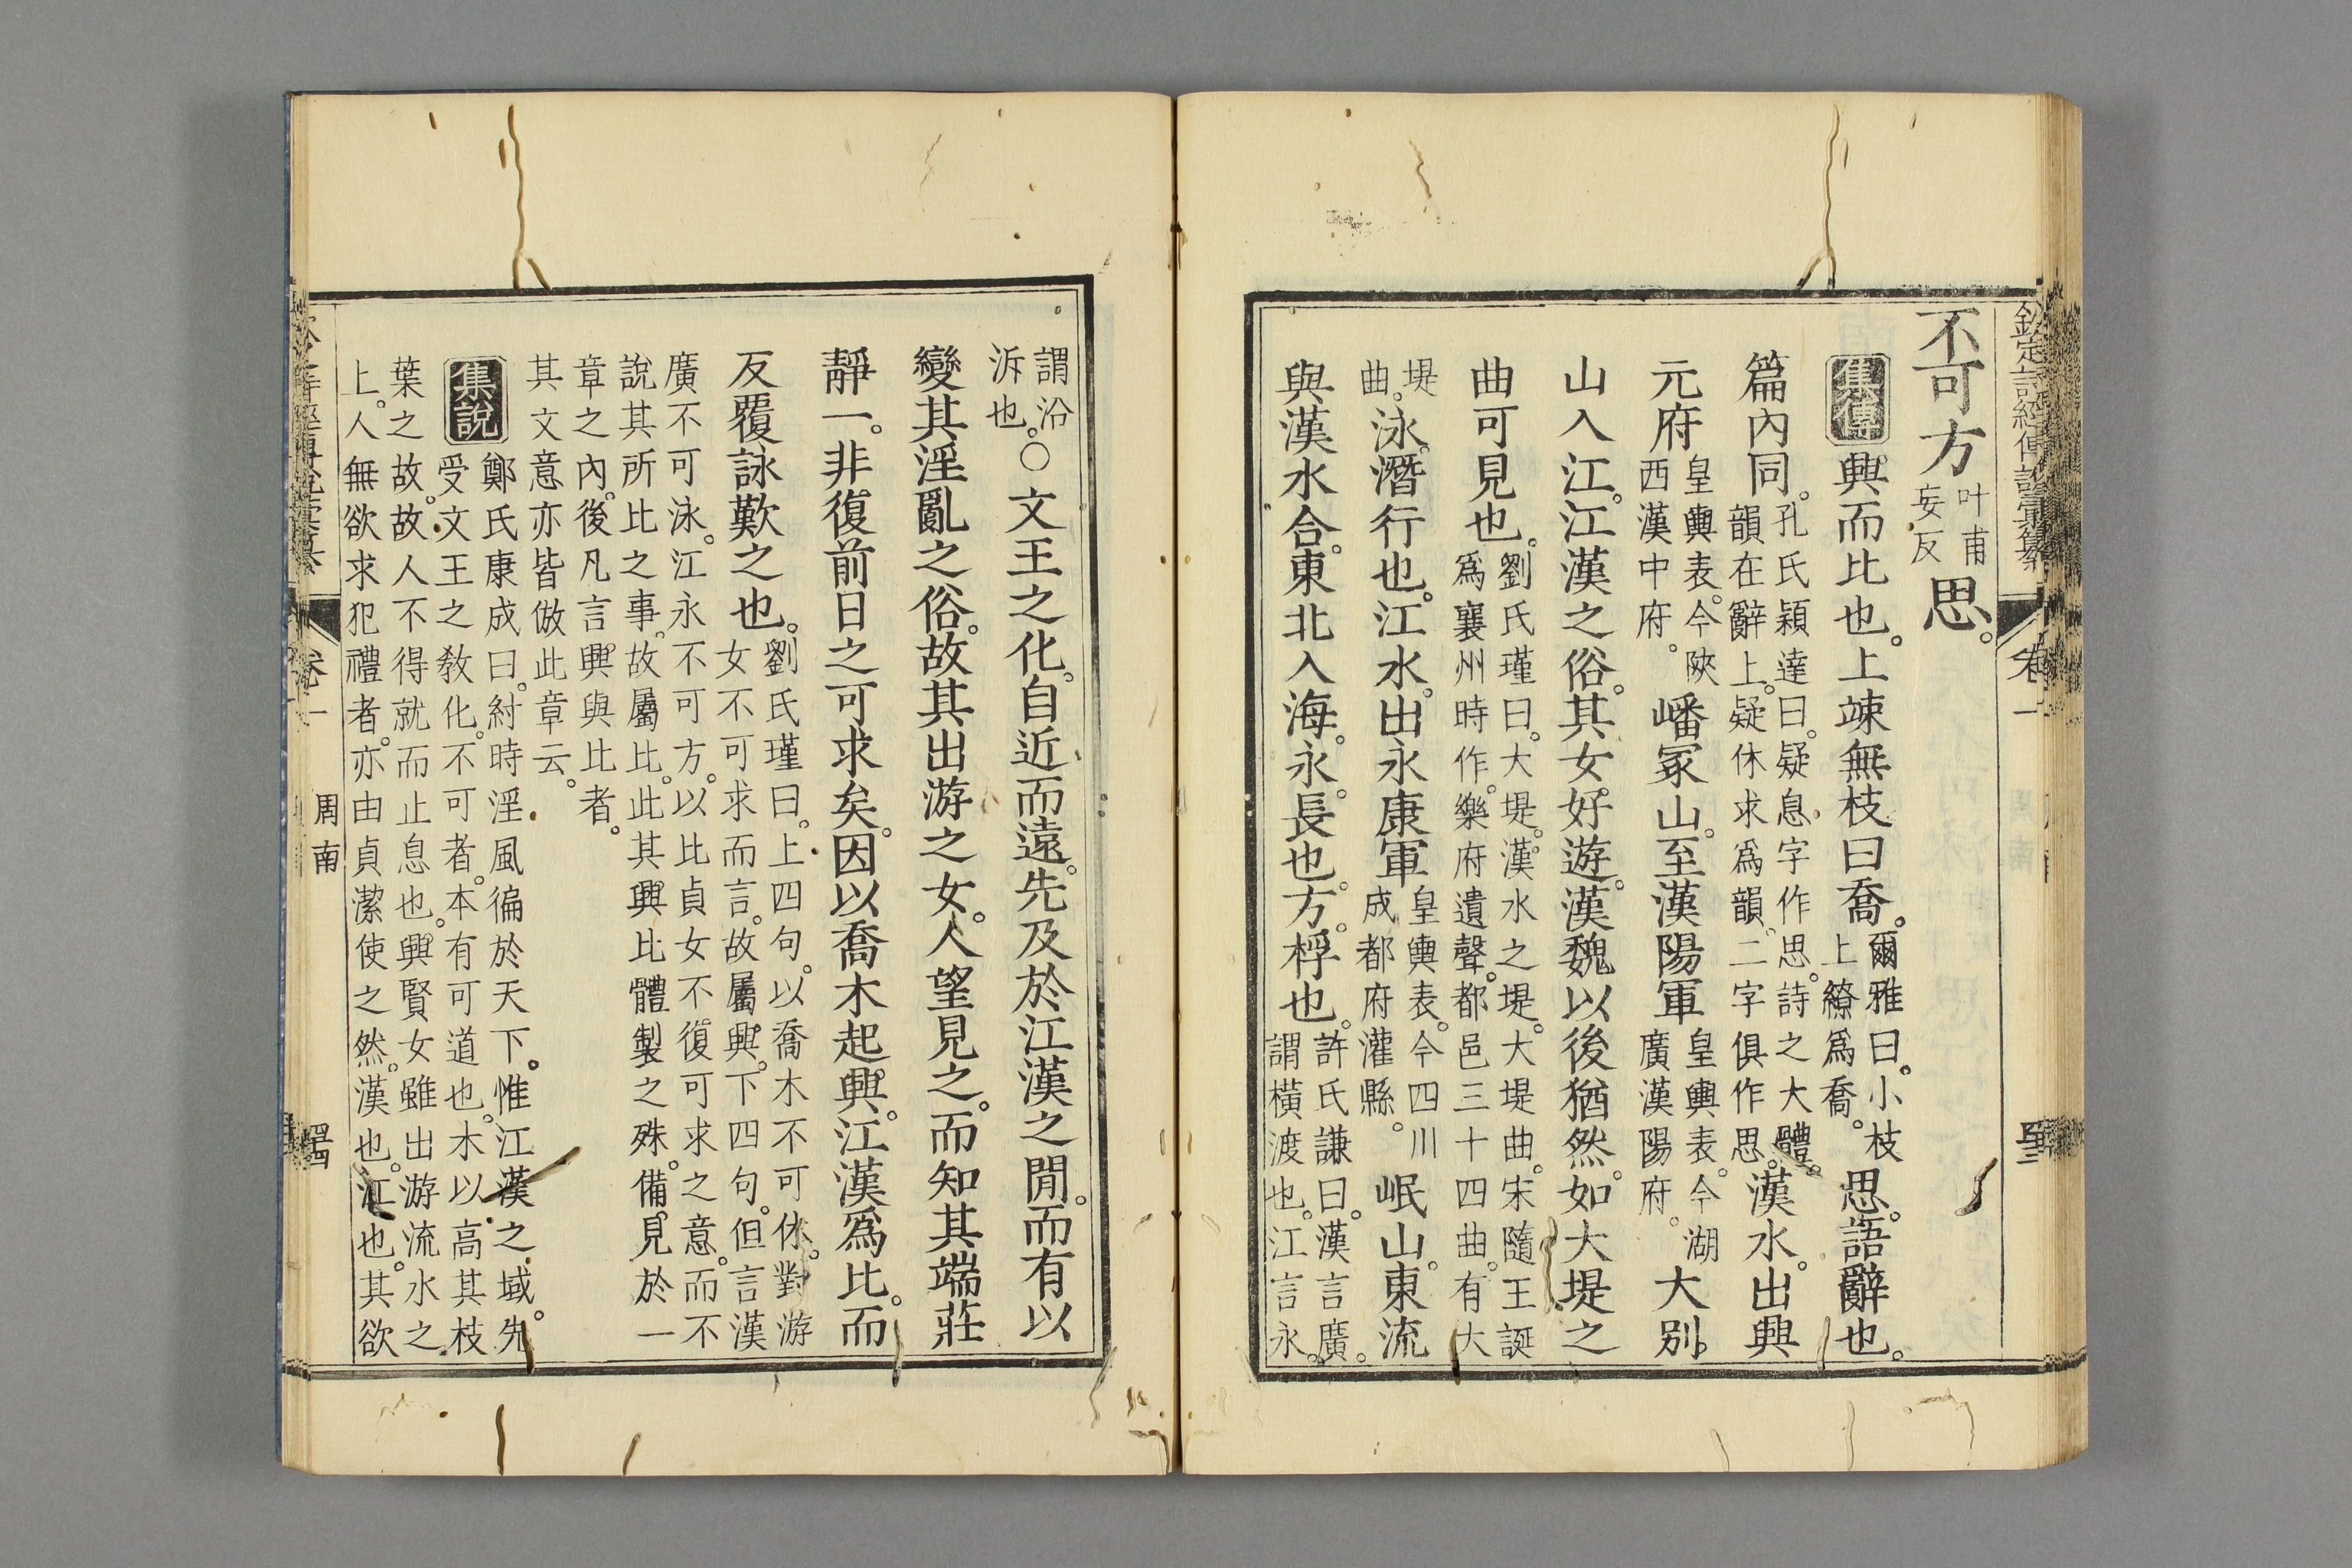 欽定詩經傳說彙纂 卷一
不可方叶甫妄反思。
集傳 興而比也。上竦無枝曰喬。爾雅曰。小枝上繚爲喬。思。語辭也。
篇內同。孔氏穎達曰。疑息字作思。詩之大體。韻在辭上。疑休求爲韻。二字俱作思。漢水。出興
元府皇輿表。今陝西漢中府。嶓冢山。至漢陽軍皇輿表。今湖廣漢陽府。大別
山入江。江漢之俗。其女好遊。漢魏以後猶然。如大堤之
曲可見也。劉氏瑾曰。大堤。漢水之堤。大堤曲。宋隨王誕爲襄州時作。樂府遺聲。都邑三十四曲。有大
堤曲。泳。潛行也。江水。出永康軍皇輿表。今四川成都府灌縣。岷山。東流
與漢水合。東北入海。永。長也。方。桴也。許氏謙曰。漢言廣。謂橫渡也。江言永。
謂沿泝也。○文王之化。自近而遠。先及於江漢之閒。而有以
變其淫亂之俗。故其出游之女。人望見之。而知其端莊
靜一。非復前日之可求矣。因以喬木起興。江漢爲比。而
反覆詠歎之也。劉氏瑾曰。上四句。以喬木不可休。對游女不可求而言。故屬興。下四句。但言漢
廣不可泳。江永不可方。以比貞女不復可求之意。而不
說其所比之事。故屬比。此其興比體製之殊。備見於一
章之內。後凡言興與比者。
其文意亦皆倣此章云。
集說 鄭氏康成曰。紂時淫風徧於天下。惟江漢之域。先
受文王之敎化。不可者。本有可道也。木以高其枝
葉之故。故人不得就而止息也。興賢女雖出游流水之
上。人無欲求犯禮者。亦由貞潔使之然。漢也。江也。其欲
卷一 周南